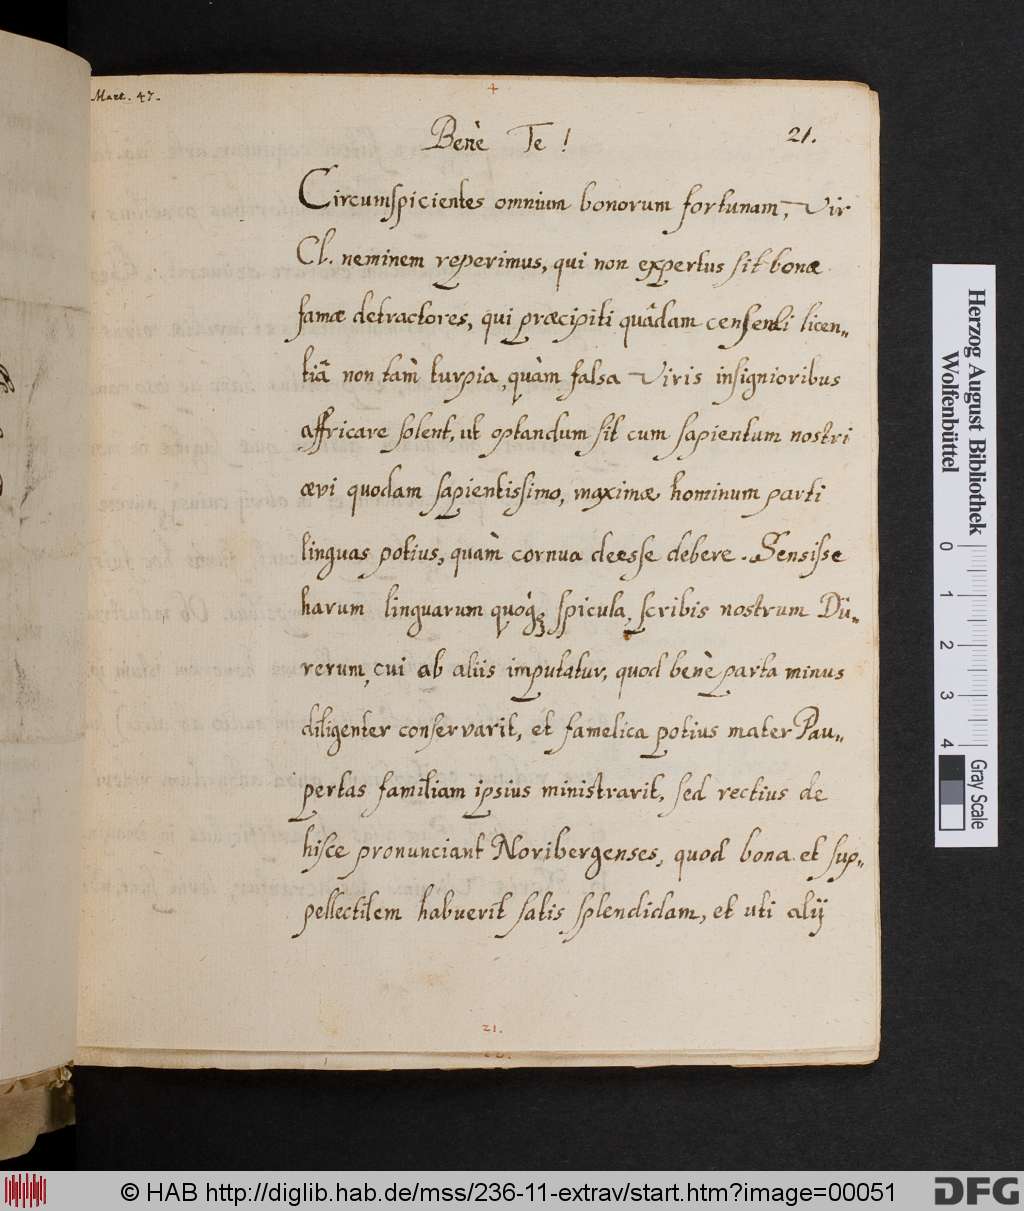 Mart. 47.
21.
Benè Te!
Circumspicientes omnium bonorum fortunam, Vir
Cl. neminem reperimus, qui non expertus sit bonæ
famæ detractores, qui præcipiti quâdam censendi licen„
tiâ non tam̀ turpia, quàm falsa Viris insignioribus
affricare solent, ut optandum sit cum sapientum nostri
ævi quodam sapientissimo, maximæ hominum parti
linguas potius, quam̀ cornua deesse debere. Sensisse
harum linguarum quóqꝫ spicula, scribis nostrum Dü„
rerum, cui ab aliis imputatur, quod benè parta minus
diligenter conservarit, et famelica potius mater Pau„
pertas familiam ipsius ministrarit, sed rectius de
hisce pronunciant Noribergenses, quod bona et sup„
pellectilem habuerit satis splendidam, et uti alij
21.
Herzog August Bibliothek
Wolfenbüttel
0 1 2 3 4
Gray Scale
© HAB http://diglib.hab.de/mss/236-11-extrav/start.htm?image=00051
DFG